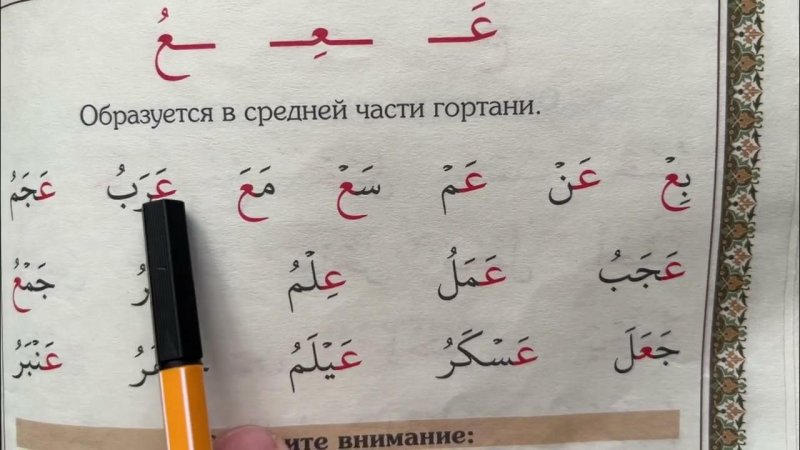 عَـ ـعِـ ـعُ
Образуется в средней части гортани.
بِعْ عَنْ عَمْ سَعْ مَعَ عَرَبُ عَجَمُ
عَجَبُ عَمَلُ عِلْمُ جَمْعُ
جَعَلَ عَسْكَرُ عَيْلَمُ عَنْبَرُ
внимание: